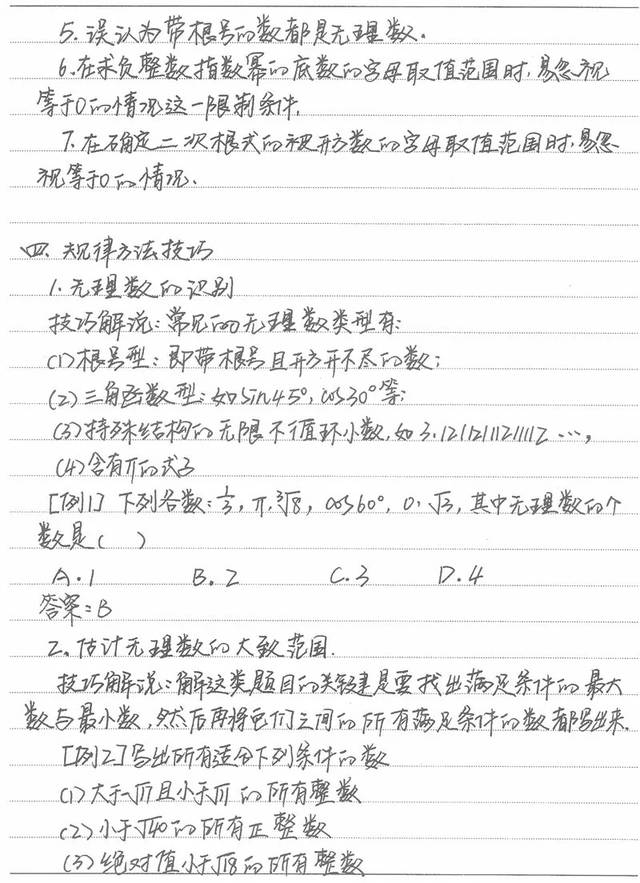 5.误认为带根号的数都是无理数。
6.在求负整数指数幂的底数的字母取值范围时,易忽视
等于0的情况这一限制条件.
7.在确定二次根式的被开方数的字母取值范围时,易忽
视等于0的情况.
四、规律方法技巧
1.无理数的识别
技巧解说:常见的无理数类型有:
(1)根号型:即带根号且开方开不尽的数;
(2)三角函数型:如sin45°,cos30°等;
(3)特殊结构的无限不循环小数,如3.12112111211112…,
(4)含有π的式子
[例1]下列各数:1/3,π,∛8,cos60°,0,√3,其中无理数的个
数是( )
A.1 B.2 C.3 D.4
答案:B
2.估计无理数的大致范围.
技巧解说:解这类题目的关键是要找出满足条件的最大
数与最小数,然后再将它们之间的所有满足条件的数都写出来.
[例2]写出所有适合下列条件的数
(1)大于-√17且小于√11的所有整数
(2)小于√40的所有正整数
(3)绝对值小于√18的所有整数